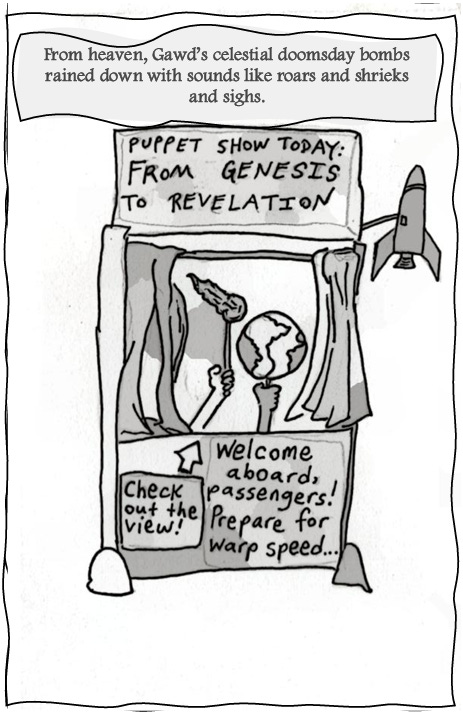 From heaven, Gawd's celestial doomsday bombs
rained down with sounds like roars and shrieks
and sighs.
PUPPET SHOW TODAY:
FROM GENESIS
TO REVELATION
Check
out the
view!
Welcome
aboard,
passengers!
Prepare for
warp speed...